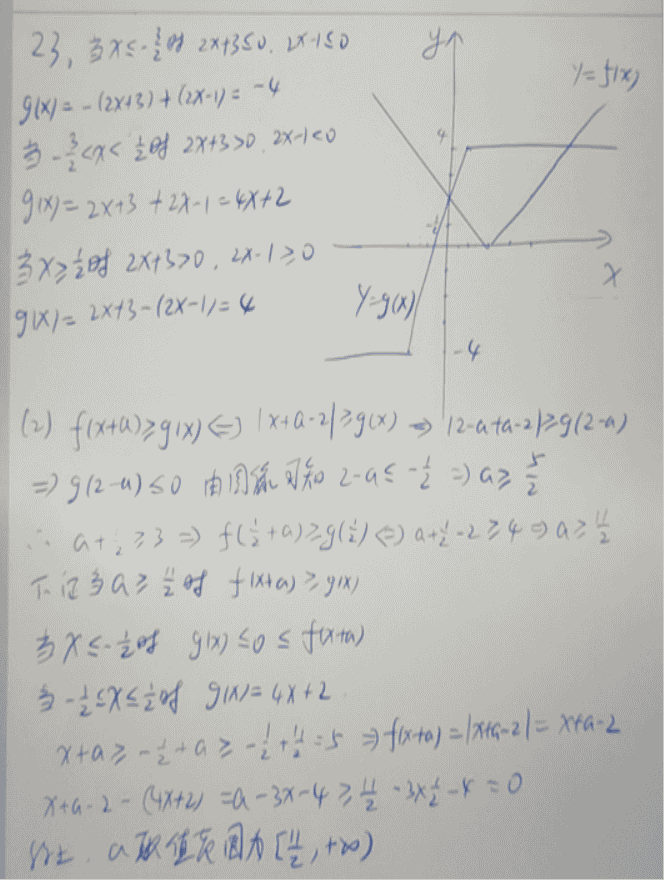 23, 当x≤-3/2时 2x+3≤0, 2x-1≤0
g(x)=-(2x+3)+(2x-1)=-4
当-3/2<x<1/2时 2x+3>0, 2x-1<0
g(x)=2x+3+2x-1=4x+2
当x≥1/2时 2x+3>0, 2x-1≥0
g(x)=2x+3-(2x-1)=4
y
y=f(x)
4
-1/2
x
y=g(x)
-4
(2) f(x+a)≥g(x)⇔|x+a-2|≥g(x)⇒|2-a+a-2|≥g(2-a)
⇒g(2-a)≤0 由图像可知 2-a≤-1/2⇒a≥5/2
∴a+1/2≥3⇒f(1/2+a)≥g(1/2)⇔a+1/2-2≥4⇒a≥11/2
下证当a≥11/2时 f(x+a)≥g(x)
当x≤-1/2时 g(x)≤0≤f(x+a)
当-1/2≤x≤1/2时 g(x)=4x+2
x+a≥-1/2+a≥-1/2+11/2=5⇒f(x+a)=|x+a-2|=x+a-2
x+a-2-(4x+2)=a-3x-4≥11/2-3×1/2-4=0
综上, a取值范围为[11/2,+∞)